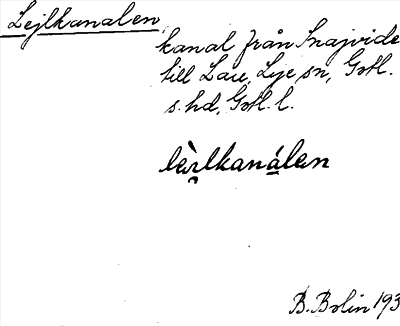 Lejlkanalen
kanal från Snajvide
till Lau, Lye sn, Gotl.
s. hd, Gotl. l.
lèɪlkanálen
B. Bolin 193